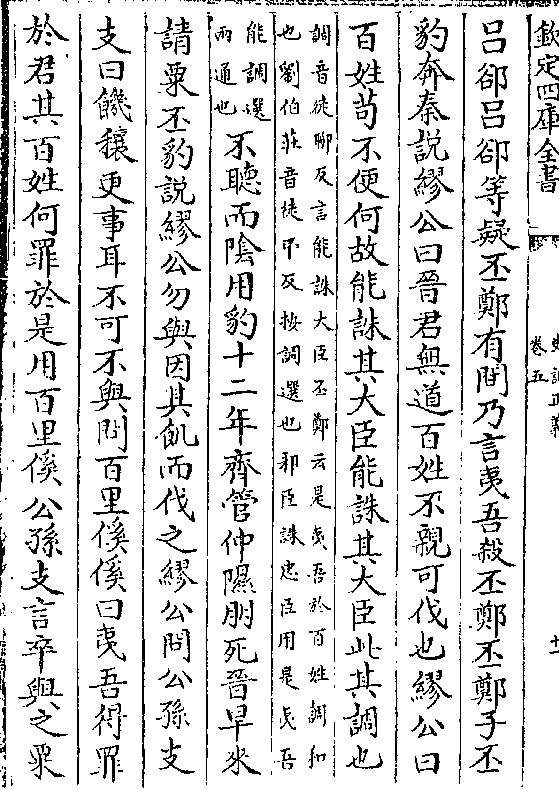 欽定四庫全書
卷五
吕郤吕郤等疑丕鄭有間乃言夷吾殺丕鄭丕鄭子丕
豹奔秦説繆公曰晉君無道百姓不親可伐也繆公曰
百姓苟不便何故能誅其大臣能誅其大臣此其調也
調音徒聊反言能誅大臣丕鄭云是夷吾於百姓調和
也劉伯莊音徒弔反按調選也邪臣誅忠臣用是夷吾
能調選
兩通也
不聽而隂用豹十二年齊管仲隰朋死晉旱來
請粟丕豹說繆公勿與因其飢而伐之繆公問公孫支
支曰饑穰更事耳不可不與問百里傒傒曰夷吾得罪
於君其百姓何罪於是用百里傒公孫支言卒與之粟